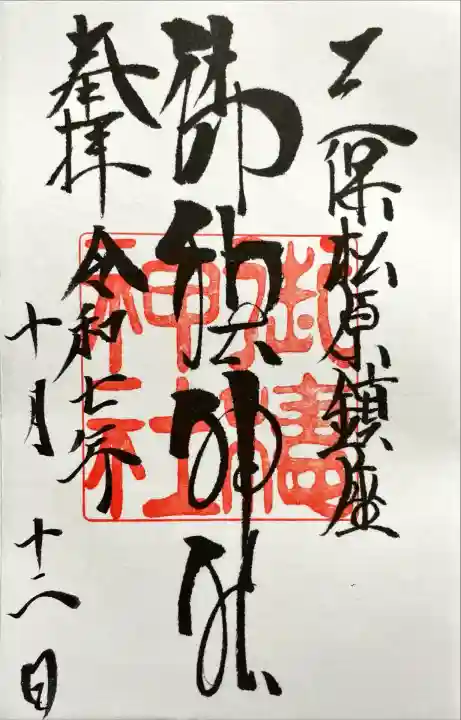 三保松原鎮座
御穂神社
奉拝 令和七年
十月十二日
御穗
神社